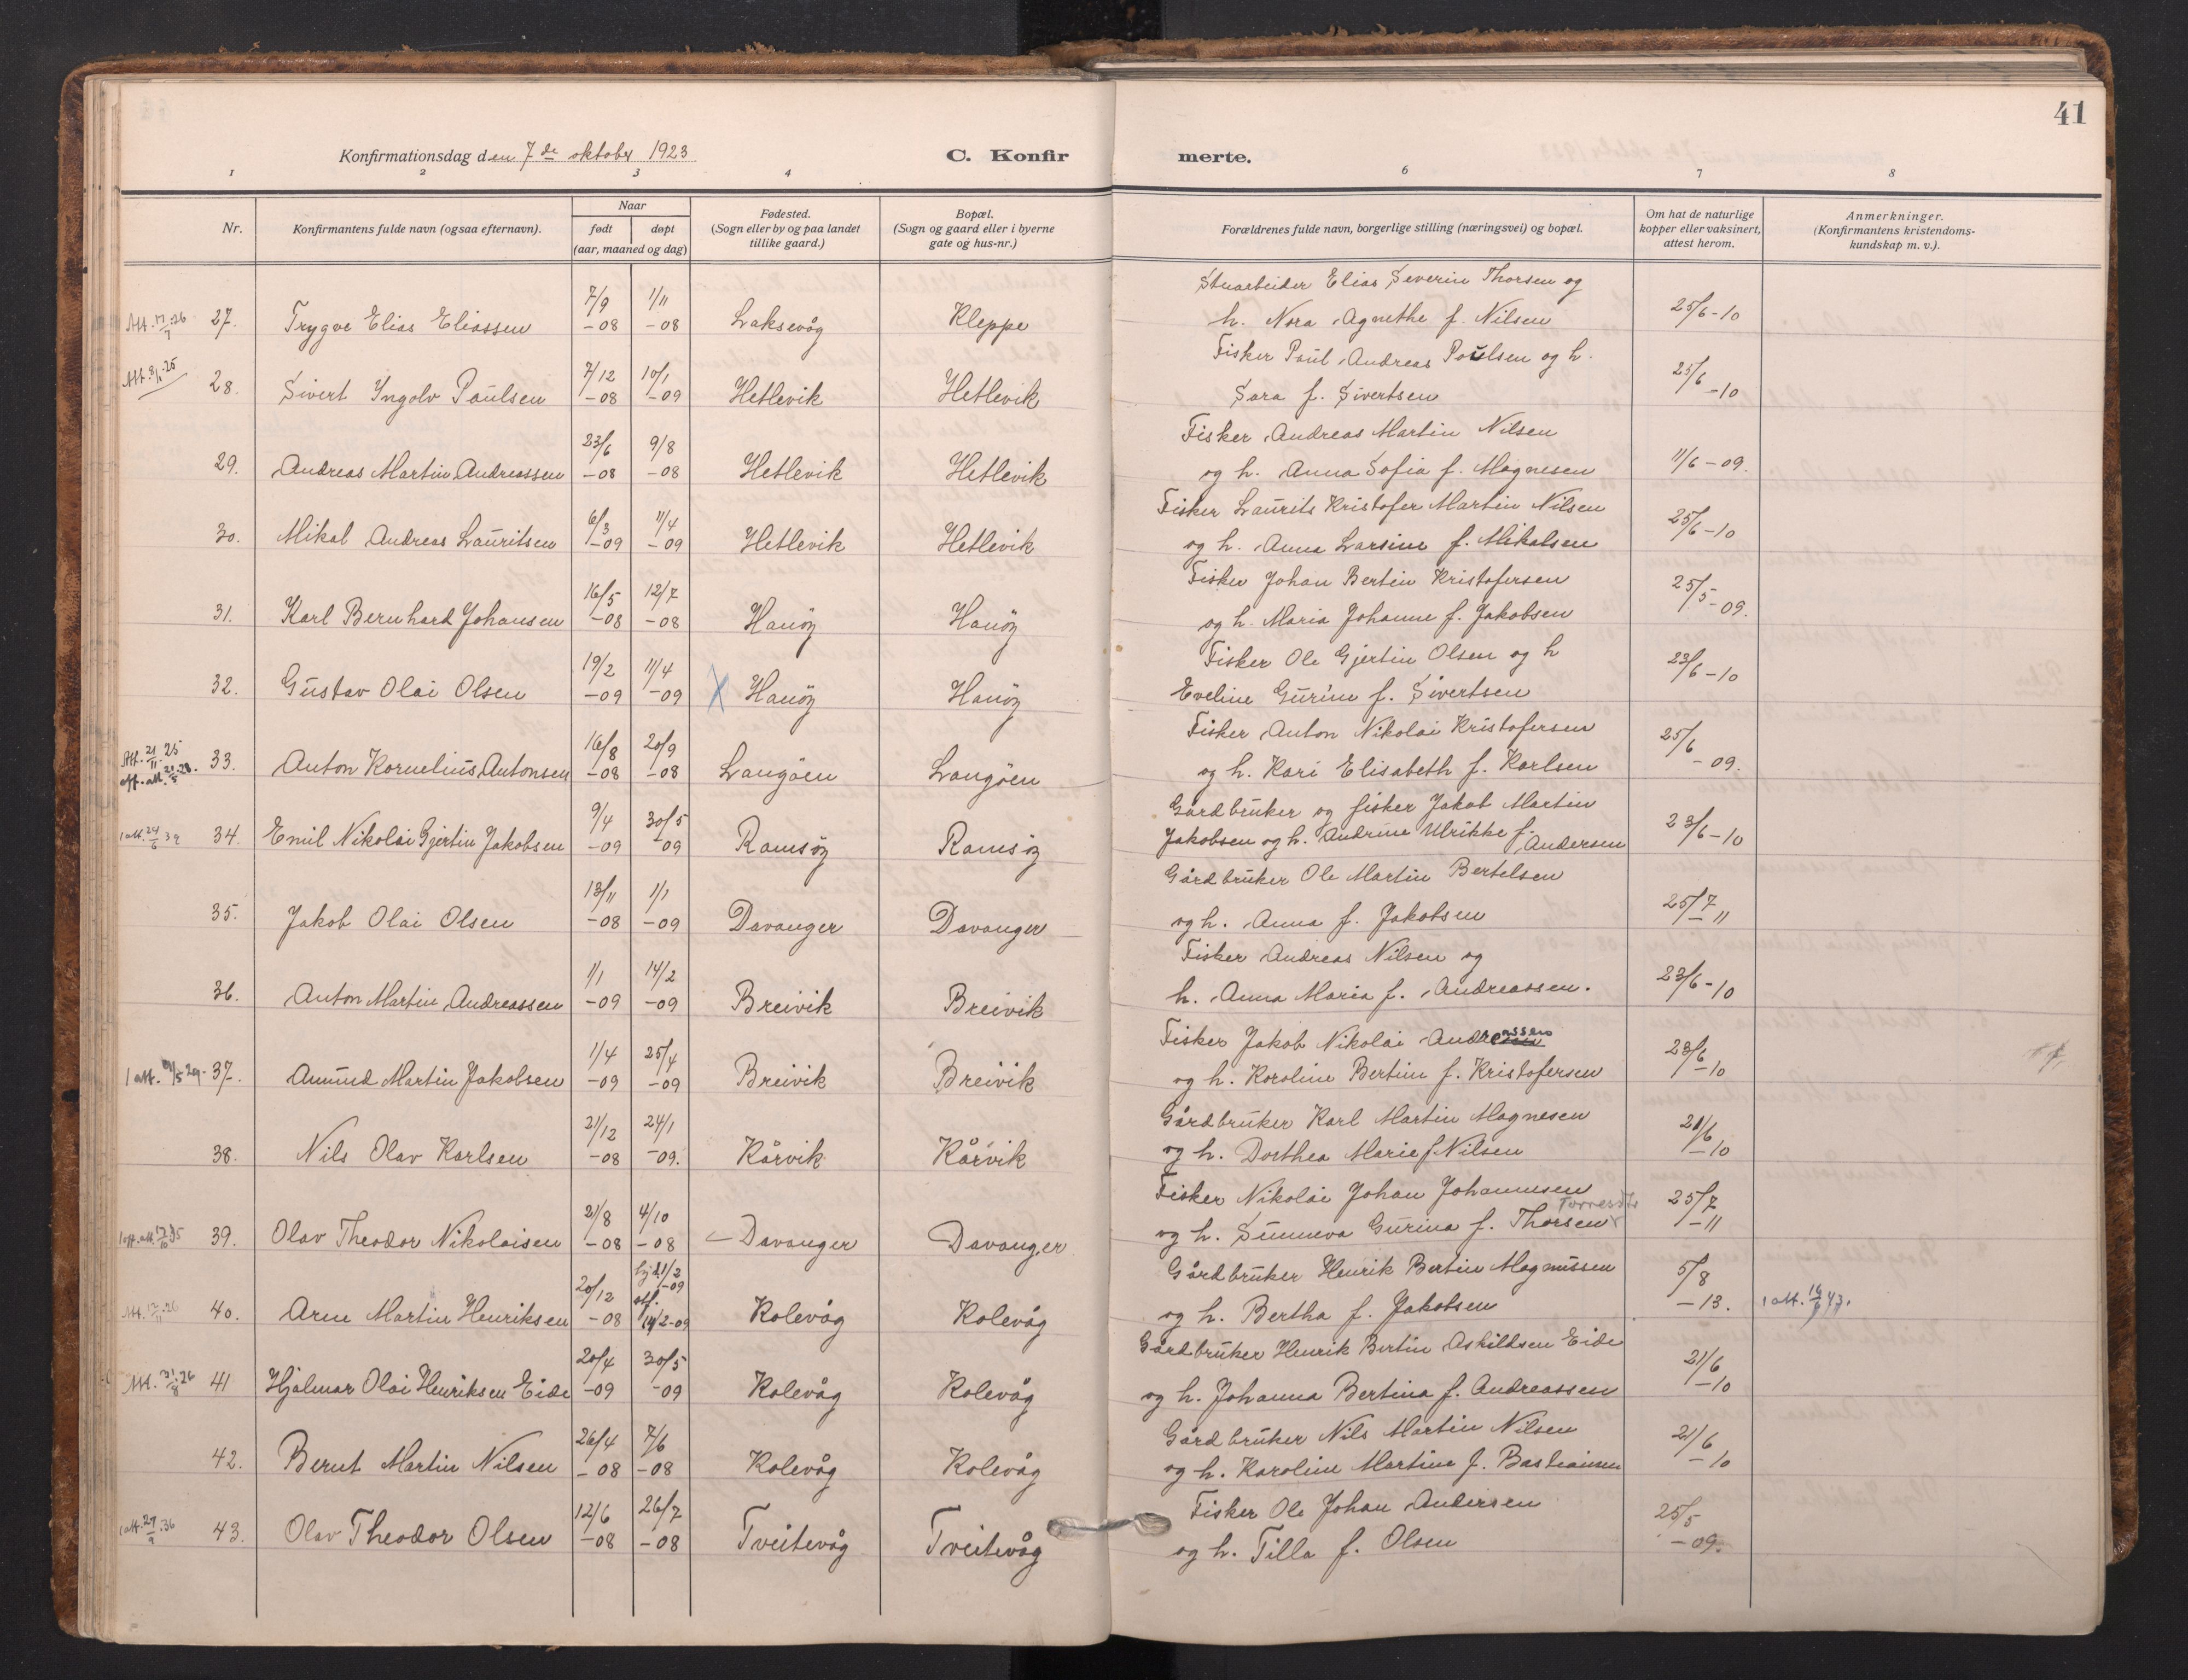 41
Konfirmationsdag den 7de oktober 1923
C. Konfirmerte.
1 2 3 4 6 7 8
Nr.
Konfirmantens fulde navn (ogsaa efternavn).
Naar
født
døpt
(aar, maaned og dag)
Fødested.
(Sogn eller by og paa landet
tillike gaard.)
Bopæl.
(Sogn og gaard eller i byerne
gate og hus-nr.)
Forældrenes fulde navn, borgerlige stilling (næringsvei) og bopæl.
Om hat de naturlige
kopper eller vaksinert,
attest herom.
Anmerkninger.
(Konfirmantens kristendoms-
kundskap m. v.).
Stuarbeider Elias Severin Thorsen og
Att. 17/7.26 27. Trygve Elias Eliassen 7/9 -08 1/11 -08 Laksevåg Kleppe h. Nora Agnethe f. Nilsen 25/6-10
Fisker Paul Andreas Poulsen og h.
Att. 8/1.25 28. Sivert Yngolv Paulsen 7/12 -08 10/1 -09 Hetlevik Hetlevik Sara f. Sivertsen 25/6 -10
Fisker Andreas Martin Nilsen
29. Andreas Martin Andreassen 23/6 -08 9/8 -08 Hetlevik Hetlevik og h. Anna Sofia f. Magnesen 11/6-09.
Fisker Laurits Kristofer Martin Nilsen
30. Mikal Andreas Lauritsen 6/3 -09 11/4 -09 Hetlevik Hetlevik og h. Anna Larsine f. Mikalsen 25/6-10
Fisker Johan Bertin Kristofersen
31. Karl Bernhard Johansen 16/5 -08 12/7 -08 Hanöy Hanöy og h. Maria Johanne f. Jakobsen 25/5-09.
Fisker Ole Gjertin Olsen og h
32. Gustav Olai Olsen 19/2 -09 11/4 -09 X Hanöy Hanöy Eveline Gurine f. Sivertsen 23/6-10
Fisker Anton Nikolai Kristofersen
Att. 21/11.25 off. att. 21/5.28. 33. Anton Kornelius Antonsen 16/8 -08 20/9 -08 Langöen Langöen og h. Kari Elisabeth f. Karlsen 25/6 -09.
Gårdbruker og fisker Jakob Martin
1 att. 24/6 39 34. Emil Nikolai Gjertin Jakobsen 9/4 -09 30/5 -09 Ramsöy Ramsöy Jakobsen og h. Andrine Ulrikke f. Andersen 23/6-10
Gårdbruker Ole Martin Bertelsen
35. Jakob Olai Olsen 13/11 -08 1/1 -09 Davanger Davanger og h. Anna f. Jakobsen 25/7 -11
Fisker Andreas Nilsen og
36. Anton Martin Andreassen 1/1 -09 14/2 -09 Breivik Breivik h. Anna Maria f. Andreassen. 23/6-10
Fisker Jakob Nikolai Andreassen
1 att. 29. 37. Amund Martin Jakobsen 1/4 -09 25/4 -09 Breivik Breivik og h. Karoline Bertine f. Kristofersen 23/6 -10
Gårdbruker Karl Martin Magnesen
38. Nils Olav Karlsen 21/12 -08 24/1 -09. Kårvik Kårvik og h. Dorthea Marie f Nilsen 21/6 -10
Fisker Nikolai Johan Johannesen
1 off. att. 35 39. Olav Theodor Nikolaisen 21/8 -08 4/10 -08 Davanger Davanger og h. Sunneva Gurina f. Thorsen 25/7 -11
Gårdbruker Henrik Bertin Magnussen
Att. 26 40. Arne Martin Henriksen 20/12 -08 hj.d. 1/2 -09 stf. 14/2-09 Kolevåg Kolevåg og h. Bertha f. Jakobsen 5/8 -13. 1 att. 16/6 43.
Gårdbruker Henrik Bertin Askildsen Eide
Att. 31/8.26 41 Hjalmar Olai Henriksen Eide 20/4 -09 30/5 -09 Kolevåg Kolevåg og h. Johanna Bertina f. Andreassen 21/6 -10
Gårdbruker Nils Martin Nilsen
42. Bernt Martin Nilsen 26/4 -08 7/6 -08 Kolevåg Kolevåg og h. Karoline Martine f. Bastiansen 21/6 -10
Fisker Ole Johan Andersen
1 att. 29/9.36 43. Olav Theodor Olsen 12/6 -08 26/7 -08 Tveitevåg Tveitevåg og h. Tilla f. Olsen 25/5 -09.